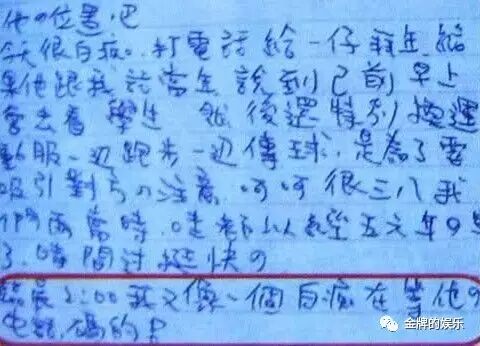 他の位置吧
今天很白痴。打電話給一仔 結
果他跟我 當年 說到已前 早上
會去看 學生 然後還特別換運
動服一边跑步一边傳球 是為了要
吸引對方の注意 呵呵很三八 我
們 時 五六年の
了 時間过挺快の
臨晨2:00我又像一個白痴在等他の
电話 的
金牌的娱乐